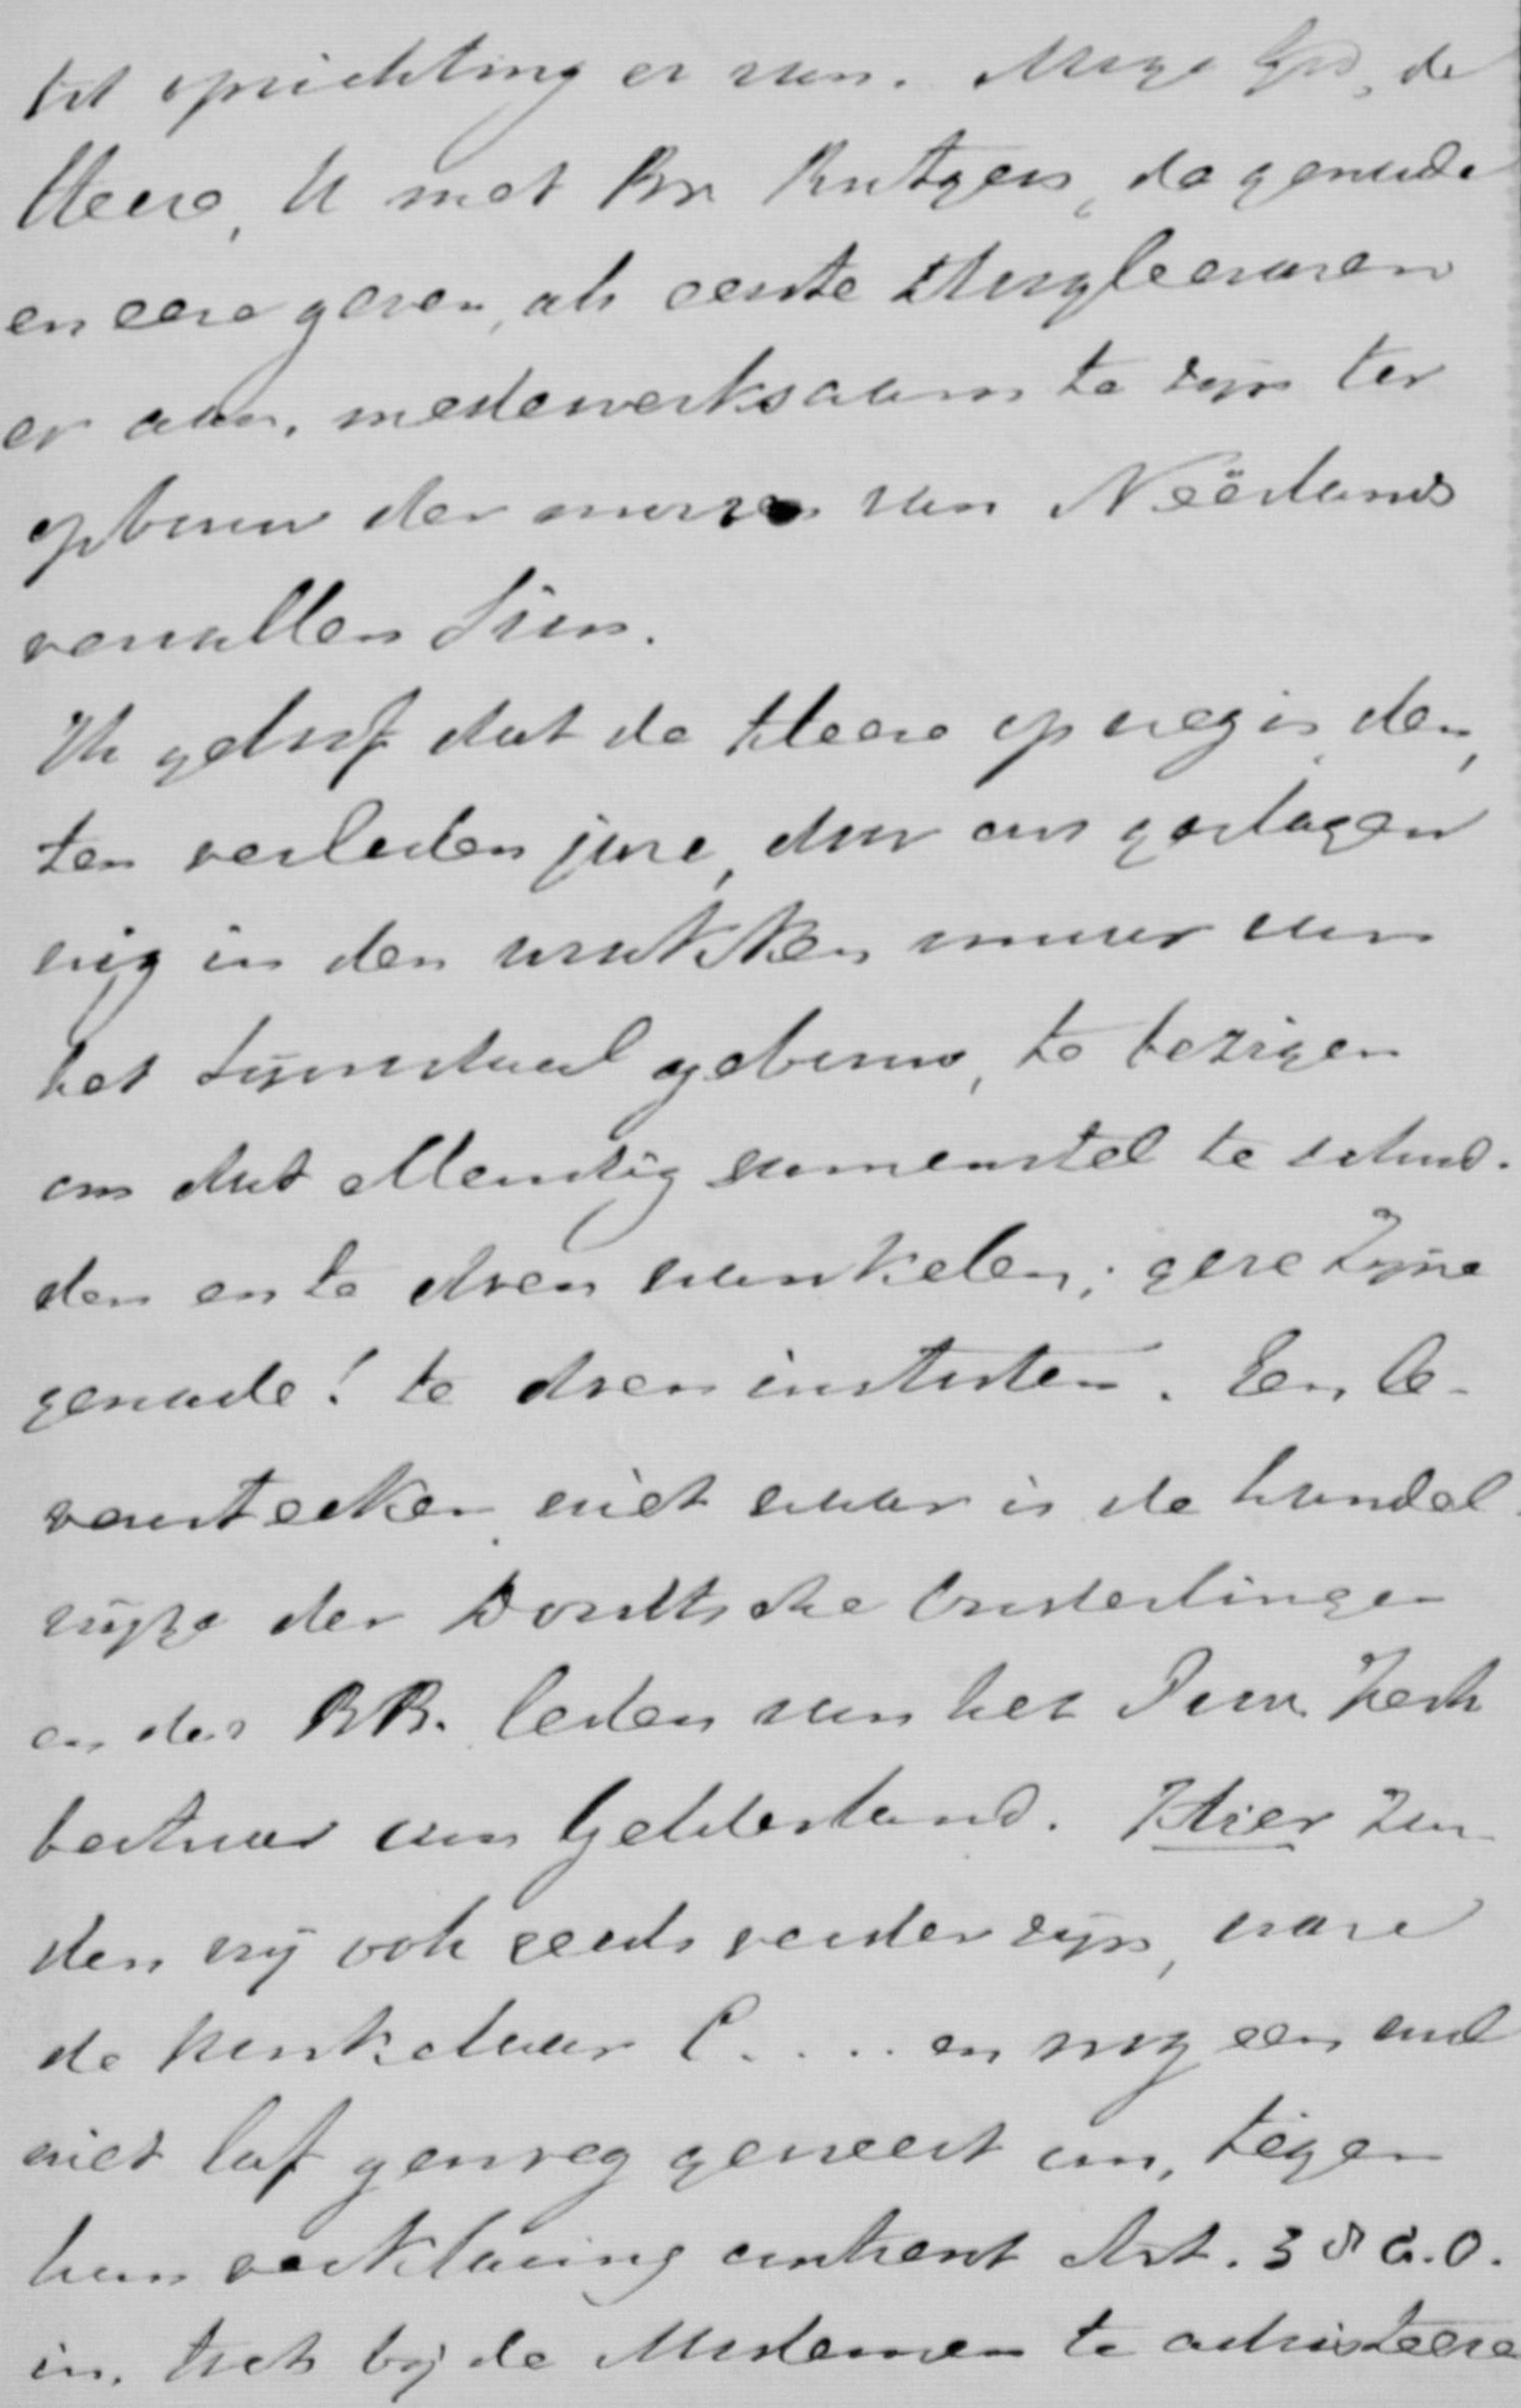 tot oprichting er van. Moge God, de
Heere, U met Br. Rutgers, de genade
en eere geven, als eerste Hoogleeraren
er aan, medewerksaam te zijn ter
opbouw der muren van Neêrlands
vervallen Sion.
Ik geloof dat de Heere op weg is, den,
ten verleden jare, door ons geslagen
wig in den wrakken muur van
het Synodaal gebouw, te bezigen
om dat ellendig samenstel te schud-
den en te doen wankelen; geve Zijne
genade! te doen instorten. En be-
vorstecken niet waar is de handel
wijze der Dordtsche Ouderlingen
en der BB. leden van het Prov. Kerk
bestuur van Gelderland. Hier zou-
den wij ook reeds verder zijn, ware
de kunkelaar C.... en nog een oud
niet laf genoeg geweest om, tegen
hun verklaring omtrent Art. 38 G.O.
in, toch bij de Modernen te adsisteere